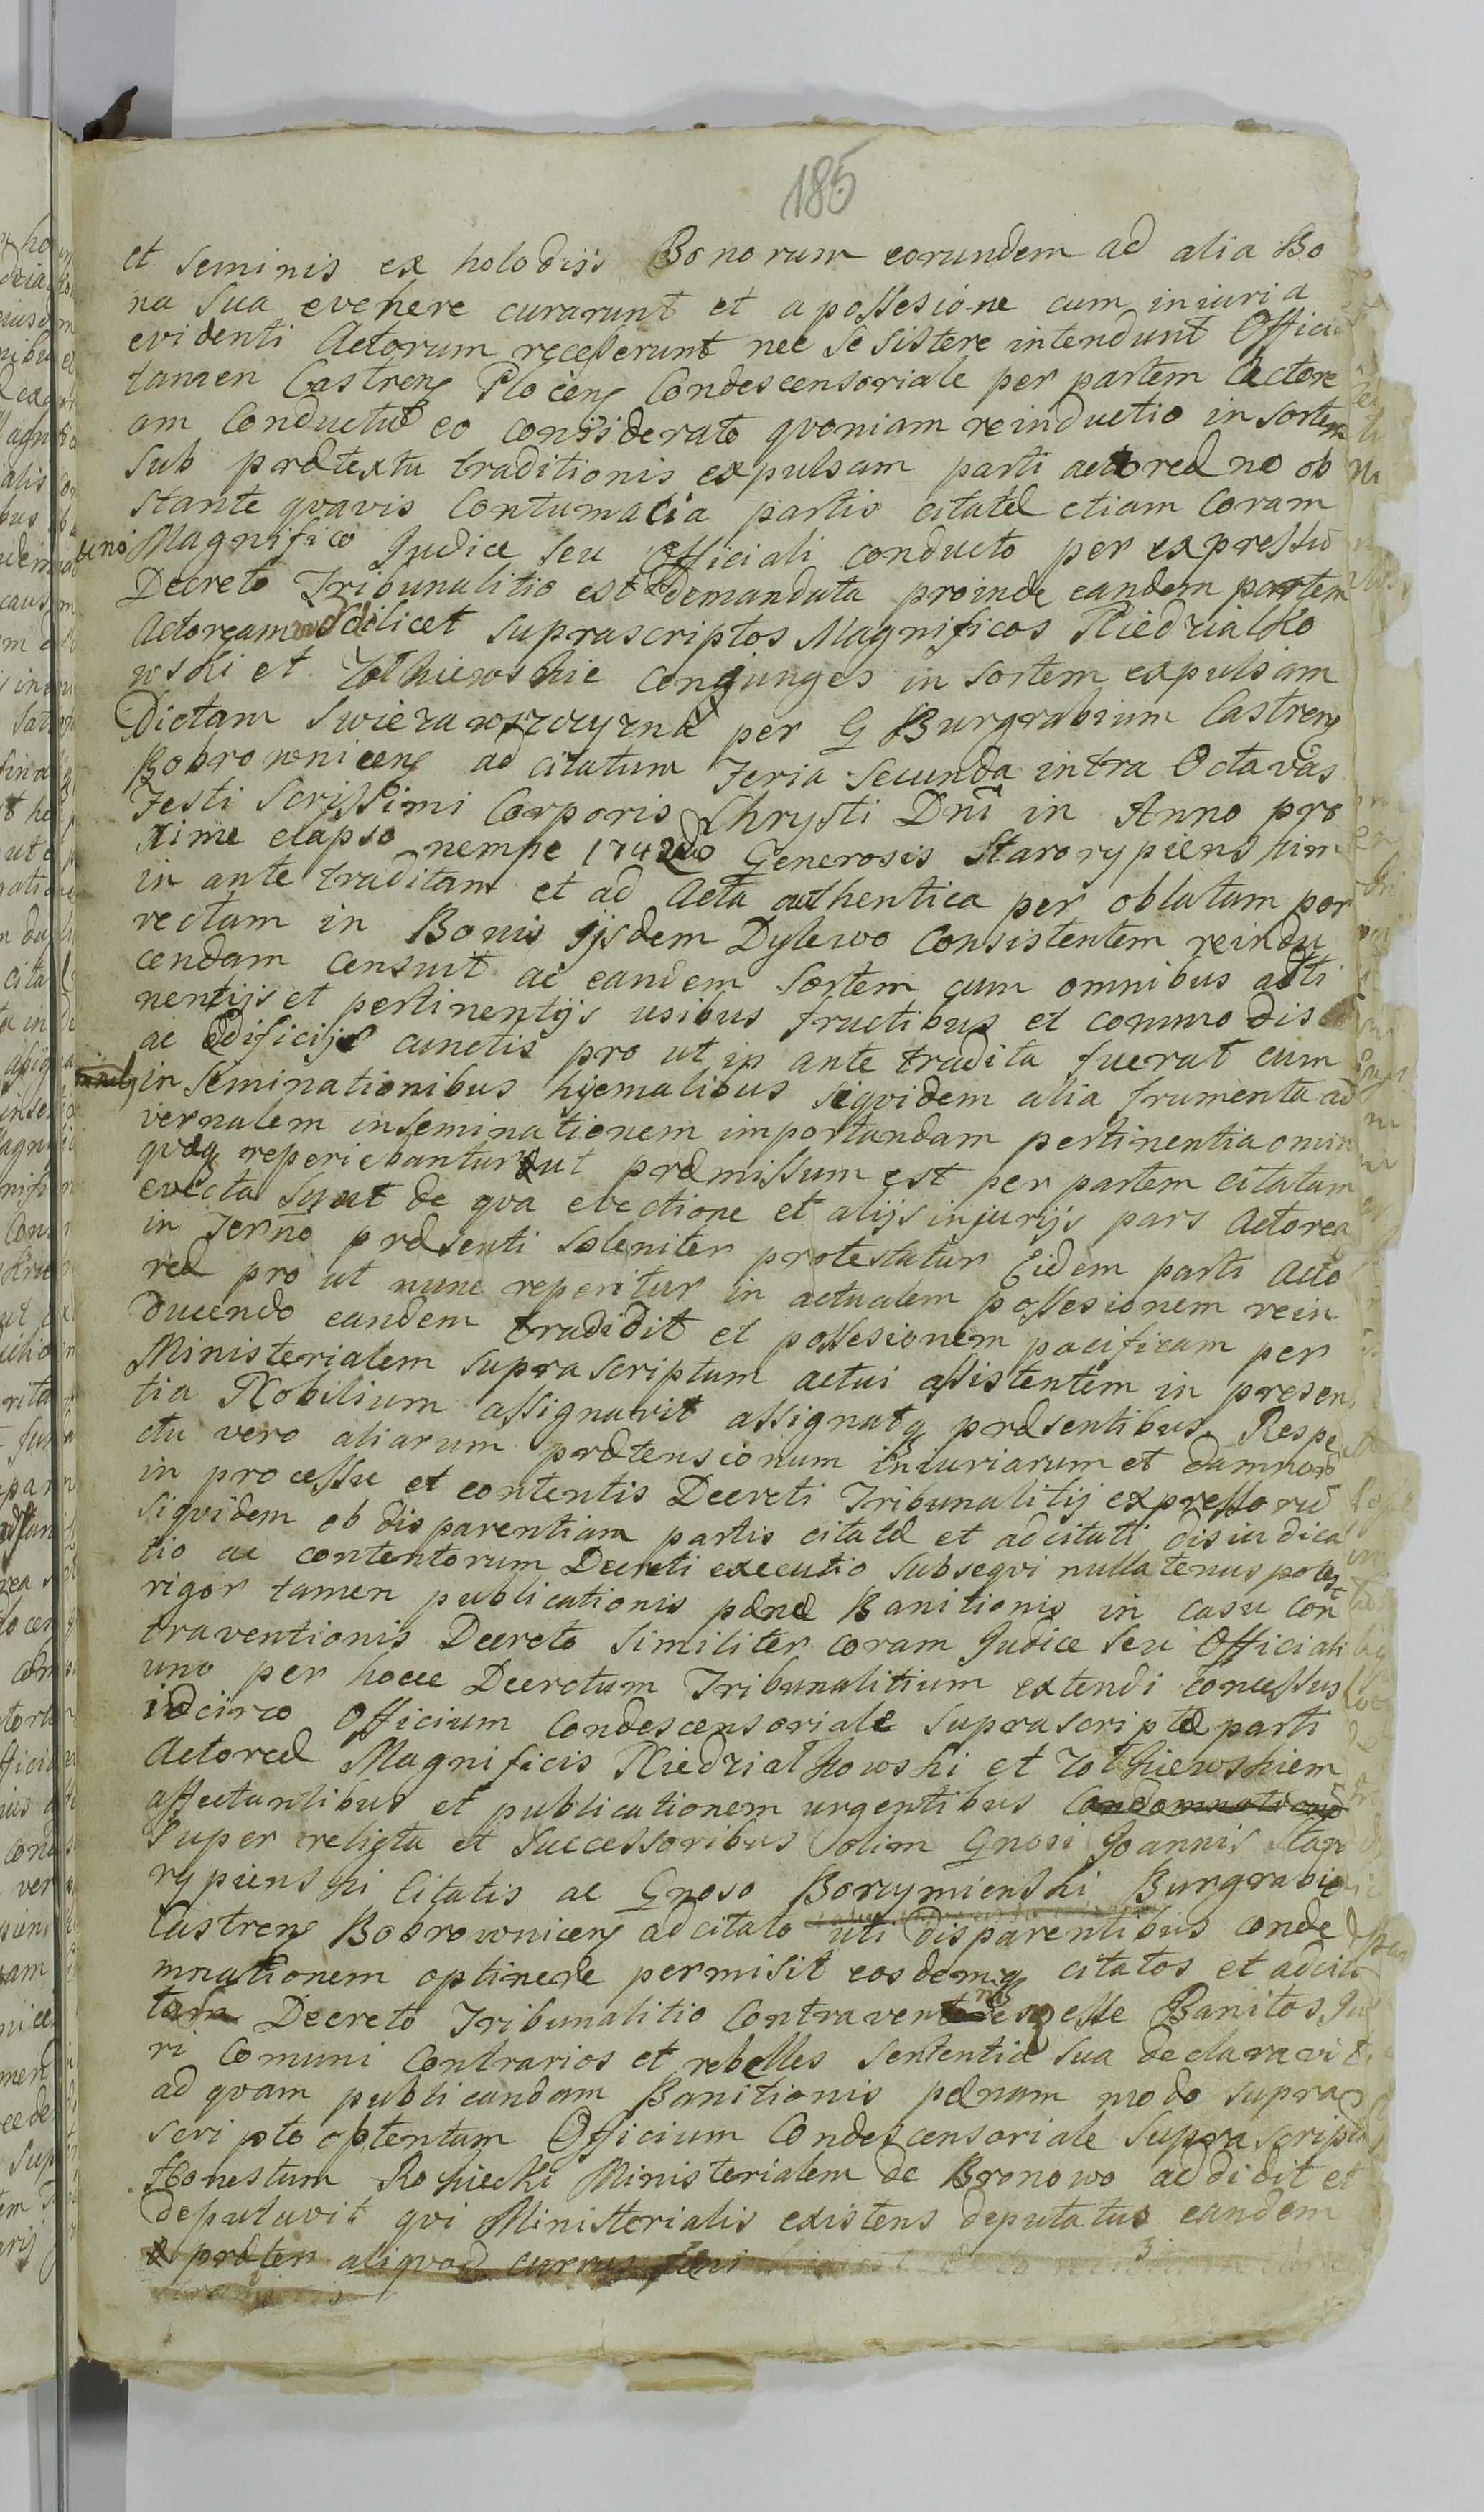 185
et seminis ex holodiis Bonorum eorundem ad alia Bo
na sua evehere curarunt et a possesione cum iniuria
evidenti Actorum recesserunt nec se sistere intendunt Offici
tamen Castrens Plocens Condescensoriale per partem Actore
am Conductū eo considerato qvoniam reinductio in sortem
sub prætextu traditionis expulsam parti actoreæ no ob
stante qvavis Contumacia partis citatæ etiam Coram
uno Magnifico Judice seu Officiali conducto per expressū
Decreto Tribunalitio est demandata proinde eandem partem
Actoream scilicet suprascriptos Magnificos Niedzialko
wski et Zolkiewskie conjuges in sortem expulsam
Dictam Swierawszczyznæ per G Burgrabium Castrens
Bobrownicens ad citatum Feria secunda intra Octavas
Festi Scrissimi Corporis Chrysti Dni in Anno pro
xime elapso nempe 1742do Generosis Starorypienskim
in ante traditam et ad Acta authentica per oblatam por
rectam in Bonis ijsdem Dylewo Consistentem reindu
cendam censuit ac eandem sortem cum omnibus atti
nentijs et pertinentijs usibus fructibus et commodis
ac Ædificijs cunctis pro ut in ante tradita fuerat cum
inseminationibus hyemalibus siqvidem alia frumenta ad
vernalem inseminationem importandam pertinentia omni
qvæq reperiebantur ut præmissum est per partem citatam
evecta sunt de qva evectione et alijs injurijs pars Actorea
in Terno præsenti soleniter protestatur Eidem parti Acto
reæ pro ut nunc reperitur in actualem possesionem rein
ducendo eandem tradidit et possesionem pacificam per
Ministerialem supra scriptum actui assistentem in presen
tia Nobilium assignavit assignatq præsentibus. Respe
ctu vero aliarum prætensionum iniuriarum et damnorū
in processu et contentis Decreti Tribunalitij expressorū
siqvidem ob disparentiam partis citatæ et adcitati disiudica
tio ac contentorum Decreti executio subseqvi nullatenus potest
rigor tamen publicationis pænæ Banitionis in casu con
traventionis Decreto similiter coram Judice seu Officiali
uno per hocce Decretum Tribunalitium extendi concessus
idcirco Officium Condescensoriale suprascriptæ parti
Actoreæ Magnificis Niedzialkowski et Zolkiewskiem
affectantibus et publicationem urgentibus Condemnationē
super relicta et successoribus olim Gnosi Joannis Star
rypienski Citatis ac Gnoso Borzymienski Burgrabio
Castrens Bobrownicens adcitato uti disparentibus conde
mnationem optinere permisit eosdemq citatos et adcita
tum Decreto Tribunalitio Contravenientes esse Banitos Ju
ri Comuni Contrarios et rebelles sententia sua declaravit
ad qvam publicandam Banitionis pænam modo supra
scripto optentam Officium Condescensoriale supra scriptū
Honestum Rokiecki Ministerialem de Bronowo addidit et
deputavit qvi Ministerialis existens deputatus eandem
præter aliqvod currus